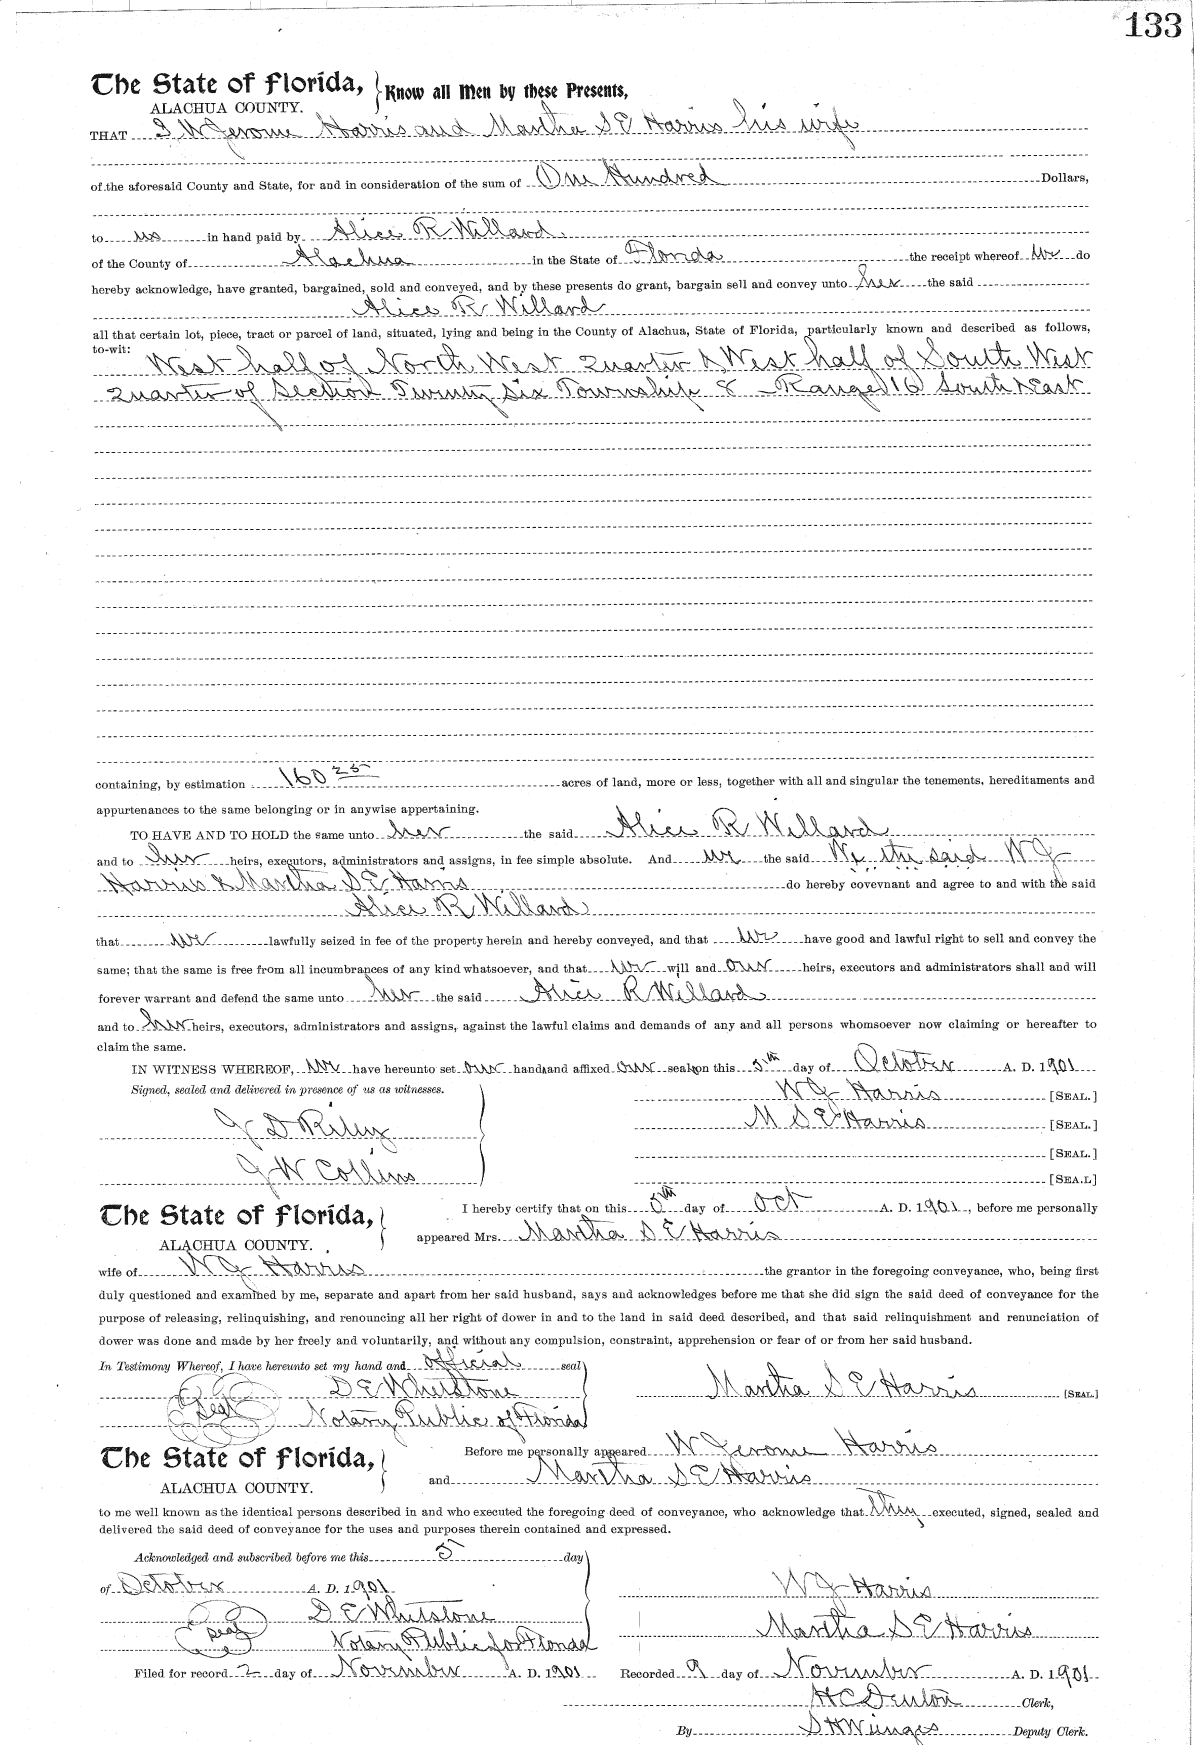 133
The State of Florida, Know all Men by these Presents,
ALACHUA COUNTY.
THAT I W Jerome Harris and Martha S E Harris his wife
of the aforesaid County and State, for and in consideration of the sum of One Hundred Dollars,
to us in hand paid by Alice R Willard
of the County of Alachua in the State of Florida the receipt whereof we do
hereby acknowledge, have granted, bargained, sold and conveyed, and by these presents do grant, bargain sell and convey unto her the said
Alice R Willard
all that certain lot, piece, tract or parcel of land, situated, lying and being in the County of Alachua, State of Florida, particularly known and described as follows,
to-wit:
West half of North West Quarter & West half of South West
Quarter of Section Twenty Six Township 8 Range 16 South & East
containing, by estimation 160 25 acres of land, more or less, together with all and singular the tenements, hereditaments and
appurtenances to the same belonging or in anywise appertaining.
TO HAVE AND TO HOLD the same unto her the said Alice R Willard
and to her heirs, executors, administrators and assigns, in fee simple absolute. And we the said We the said W J
Harris & Martha S E Harris do hereby covevnant and agree to and with the said
Alice R Willard
that we lawfully seized in fee of the property herein and hereby conveyed, and that we have good and lawful right to sell and convey the
same; that the same is free from all incumbrances of any kind whatsoever, and that we will and our heirs, executors and administrators shall and will
forever warrant and defend the same unto her the said Alice R Willard
and to her heirs, executors, administrators and assigns, against the lawful claims and demands of any and all persons whomsoever now claiming or hereafter to
claim the same.
IN WITNESS WHEREOF, we have hereunto set our hand and affixed our seal on this 5th day of October A. D. 1901
Signed, sealed and delivered in presence of us as witnesses. W J Harris [SEAL.]
M S E Harris [SEAL.]
J D Riley [SEAL.]
J W Collins [SEA.L]
The State of Florida, I hereby certify that on this 5th day of Oct A. D. 1901, before me personally
ALACHUA COUNTY. appeared Mrs. Martha S E Harris
wife of W J Harris the grantor in the foregoing conveyance, who, being first
duly questioned and examined by me, separate and apart from her said husband, says and acknowledges before me that she did sign the said deed of conveyance for the
purpose of releasing, relinquishing, and renouncing all her right of dower in and to the land in said deed described, and that said relinquishment and renunciation of
dower was done and made by her freely and voluntarily, and without any compulsion, constraint, apprehension or fear of or from her said husband.
In Testimony Whereof, I have hereunto set my hand and official seal
Seal D E Whetstone Martha S E Harris [SEAL.]
Notary Public of Florida
The State of Florida, Before me personally appeared W Jerome Harris
ALACHUA COUNTY. and Martha S E Harris
to me well known as the identical persons described in and who executed the foregoing deed of conveyance, who acknowledge that they executed, signed, sealed and
delivered the said deed of conveyance for the uses and purposes therein contained and expressed.
Acknowledged and subscribed before me this 5 day
of October A. D. 1901 W J Harris
Seal D E Whetstone Martha S E Harris
Notary Public for Florida
Filed for record 2 day of November A. D. 1901 Recorded 9 day of November A. D. 1901
H C Denton Clerk,
By S H Wienges Deputy Clerk.